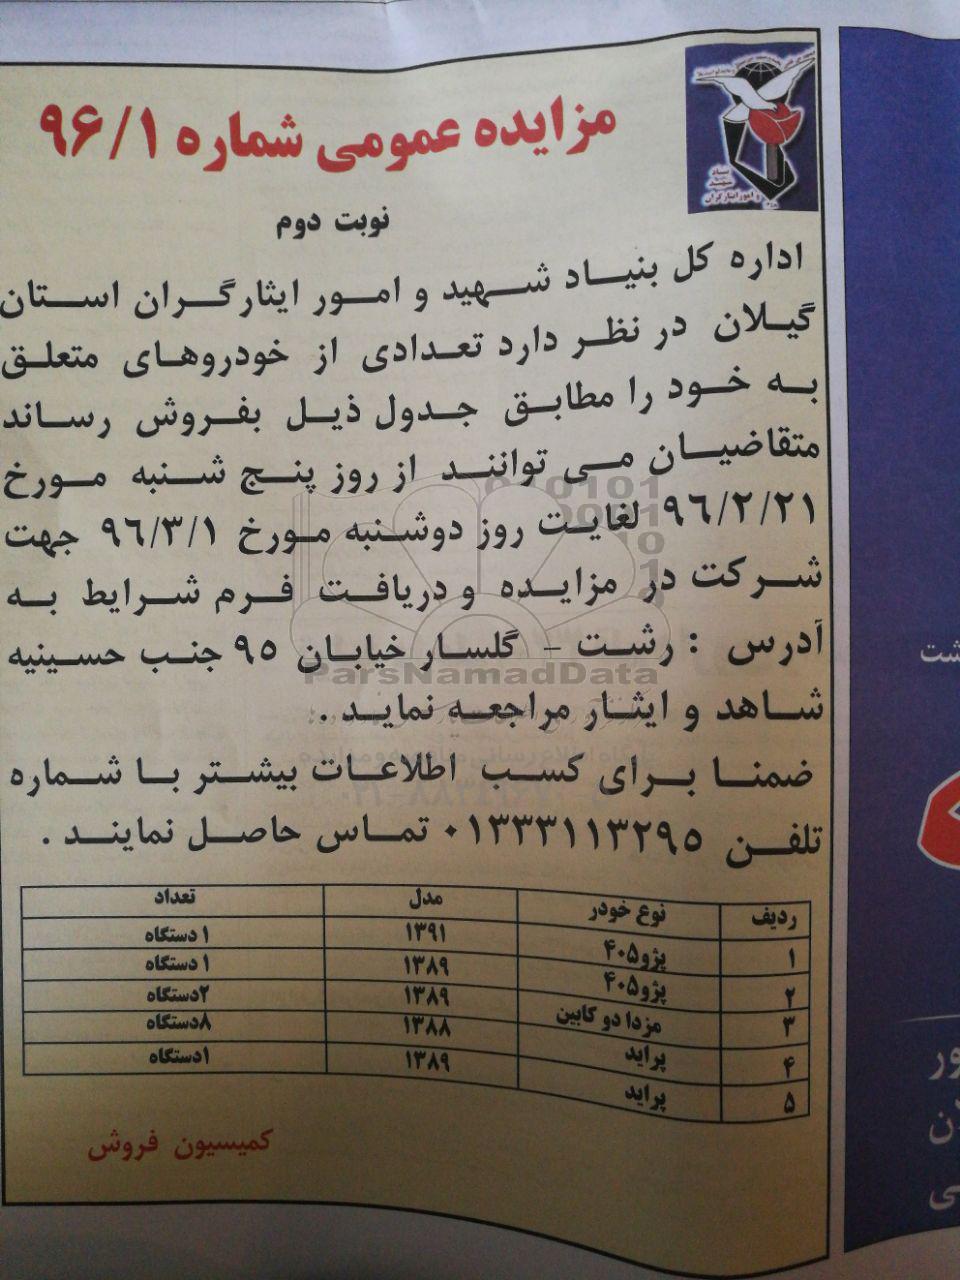 مزایده عمومی شماره ۹۶/۱
نوبت دوم
بنیاد
شهید
و امور ایثارگران
اداره کل بنیاد شهید و امور ایثارگران استان
گیلان در نظر دارد تعدادی از خودروهای متعلق
به خود را مطابق جدول ذیل بفروش رساند
متقاضیان می توانند از روز پنج شنبه مورخ
۹۶/۲/۲۱ لغایت روز دوشنبه مورخ ۹۶/۳/۱ جهت
شرکت در مزایده و دریافت فرم شرایط به
آدرس : رشت - گلسار خیابان ۹۵ جنب حسینیه
شاهد و ایثار مراجعه نماید .
ضمنا برای کسب اطلاعات بیشتر با شماره
تلفن ۰۱۳۳۳۱۱۳۲۹۵ تماس حاصل نمایند .
ردیف نوع خودر مدل تعداد
۱ پژو۴۰۵ ۱۳۹۱ ۱دستگاه
۲ پژو۴۰۵ ۱۳۸۹ ۱دستگاه
۳ مزدا دو کابین ۱۳۸۹ ۲دستگاه
۴ پراید ۱۳۸۸ ۸دستگاه
۵ پراید ۱۳۸۹ ۱دستگاه
کمیسیون فروش
ParsNamadData